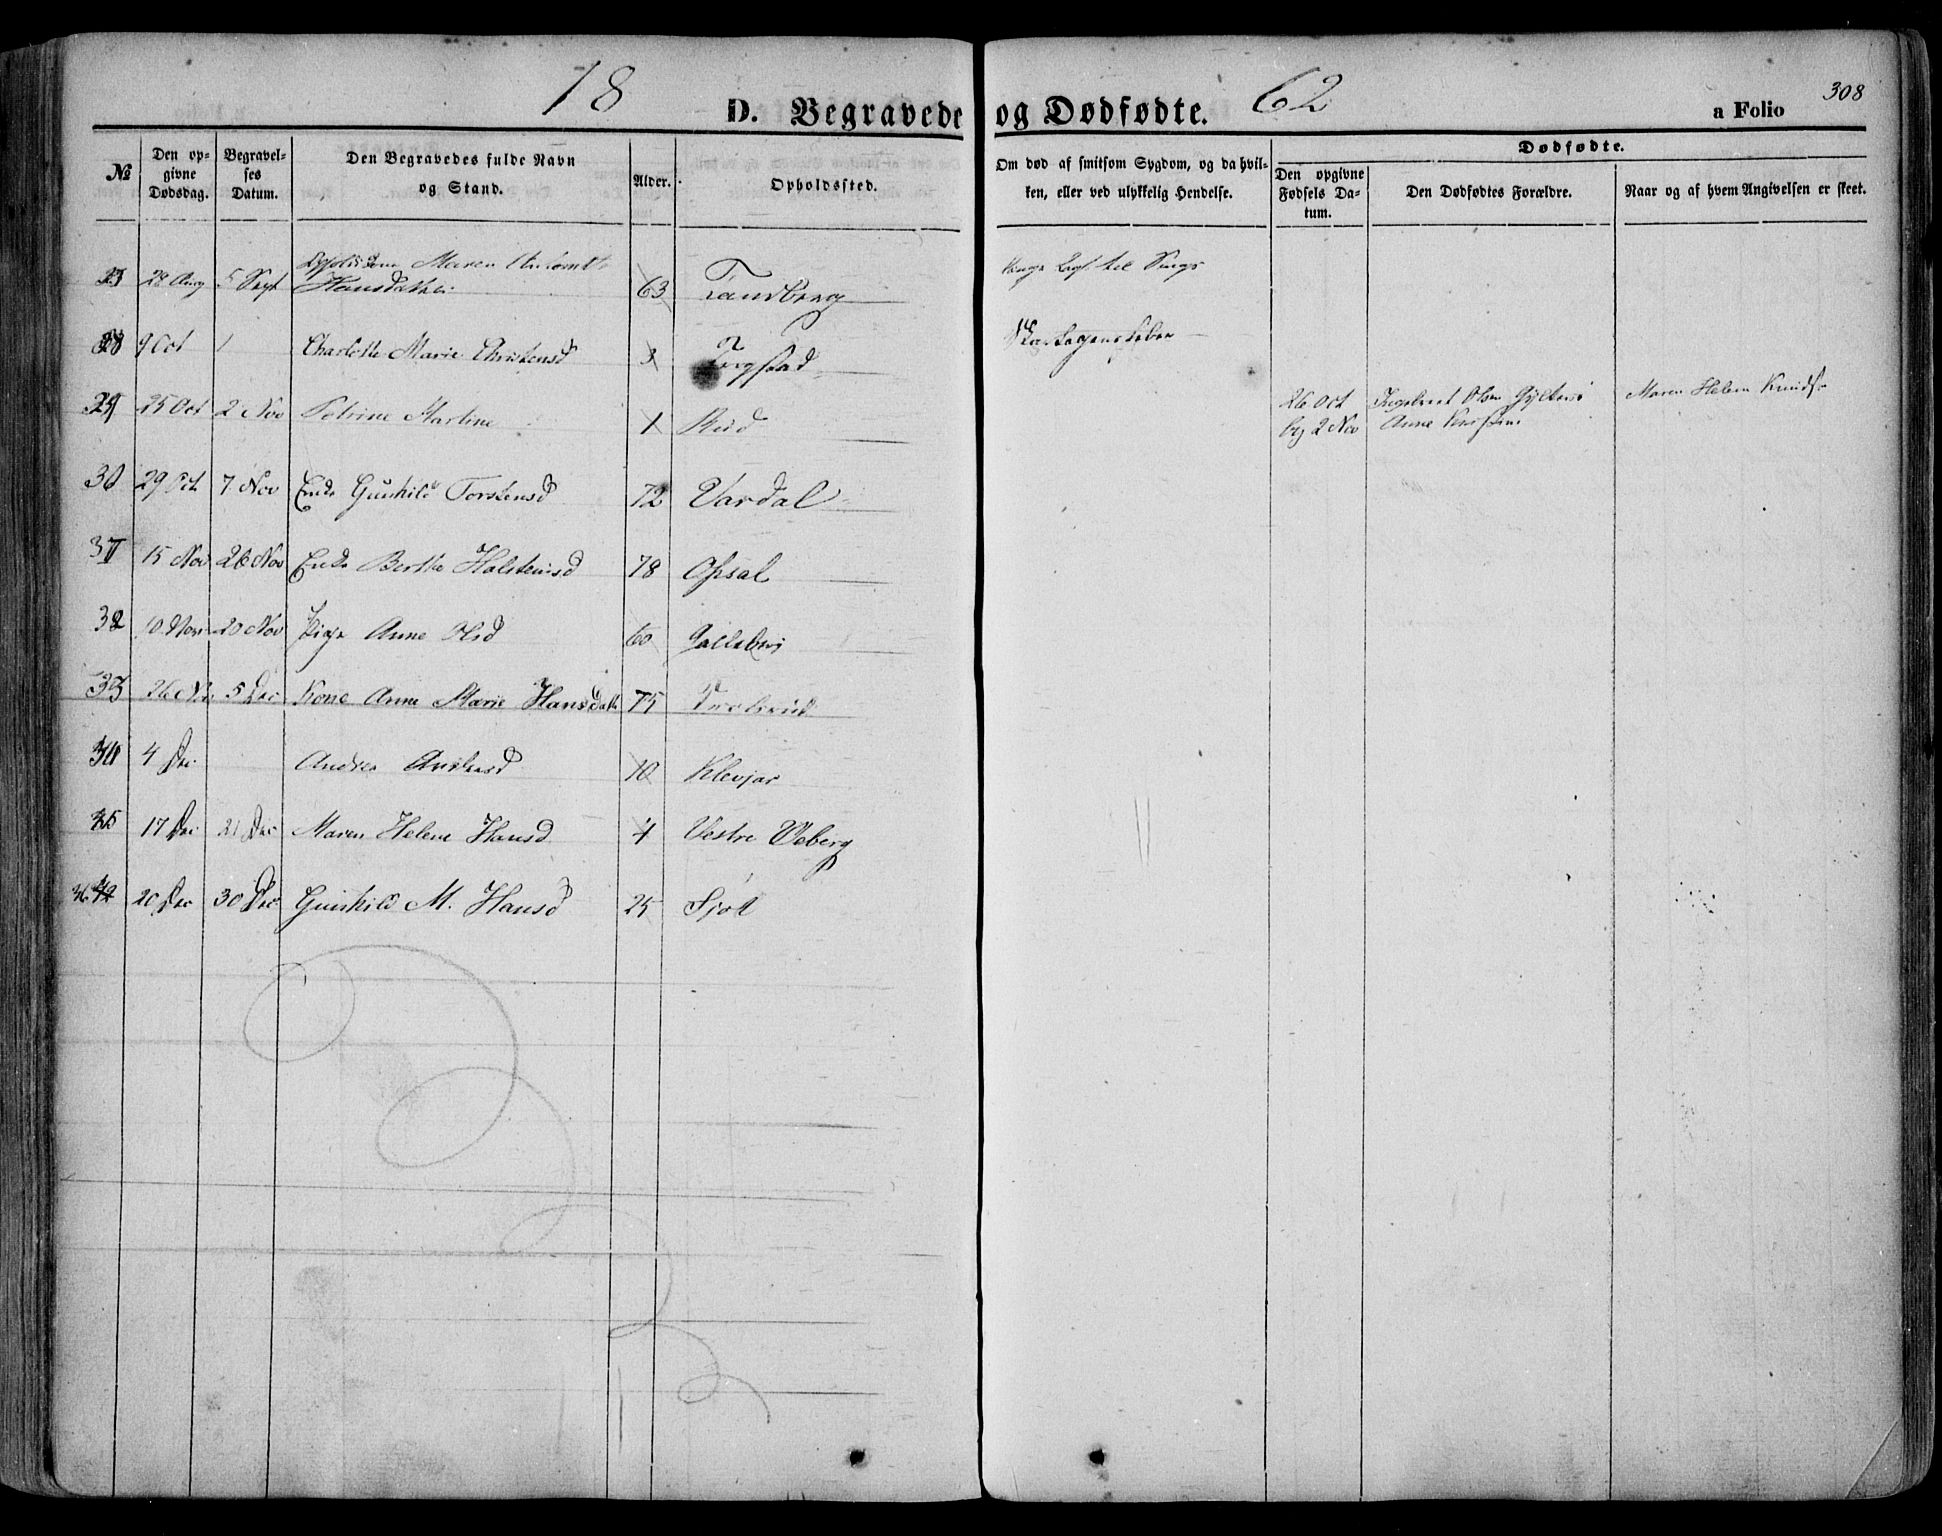 18 62
308
D. Begravede og Dødfødte.
a Folio
№
Den op-
givne
Dødsdag.
Begravel-
ses
Datum.
Den Begravedes fulde Navn
og Stand.
Alder.
Opholdssted.
Om død af smitsom Sygdom, og da hvil-
ken, eller ved ulykkelig Hendelse.
Dødfødte.
Den opgivne
Fødsels Da-
tum.
Den Dødfødtes Forældre.
Naar og af hvem Angivelsen er skeet.
28 Aug 5 Sept Maren
Hansdatter 63 Tandberg
9 Oct Charlotte Marie Christensd 3
29 25 Oct 2 Nov Petrine Martine 1 Rud
26 Oct Ingebret Olsen Maren Helene Knudsd
beg 2 Nov Anne
30 29 Oct 7 Nov Enke Gunhild Torstensd 72 Vardal
31 15 Nov 26 Nov Enke Berthe Halsteinsd 78 Opsal
32 10 Nov 20 Nov Pige Anne Olsd 60
33 26 Nov 5 Dec Kone Anne Marie Hansdatt 75
34 4 Dec Andrea 10 Klevjar
35 17 Dec 21 Dec Maren Helene Hansd 4 Vestre Veberg
36 20 Dec 30 Dec Gunhild M. Hansd 25 Sjøl